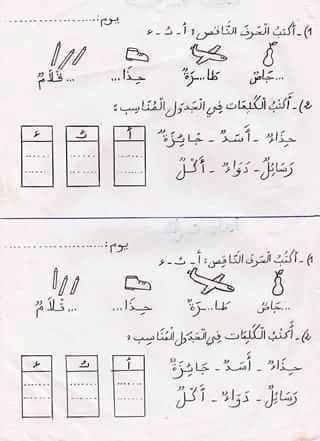 يوم: ......................
1) - أَكْتُبُ الْحَرْفَ النَّاقِصَ: أ - ئ - ء
...جَاصٌ طَا...رَةٌ حِذَا... ...قْلَامٌ
2) - أَكْتُبُ الْكَلِمَاتِ فِي الْجَدْوَلِ الْمُنَاسِبِ:
حِذَاءٌ - أَسَدٌ - جَائِزَةٌ
رَسَائِلُ - دَوَاءٌ - أَكْلٌ
أ ئ ء
...... ...... ......
...... ...... ......
يوم: ......................
1) - أَكْتُبُ الْحَرْفَ النَّاقِصَ: أ - ئ - ء
...جَاصٌ طَا...رَةٌ حِذَا... ...قْلَامٌ
2) - أَكْتُبُ الْكَلِمَاتِ فِي الْجَدْوَلِ الْمُنَاسِبِ:
حِذَاءٌ - أَسَدٌ - جَائِزَةٌ
رَسَائِلُ - دَوَاءٌ - أَكْلٌ
أ ئ ء
...... ...... ......
...... ...... ......